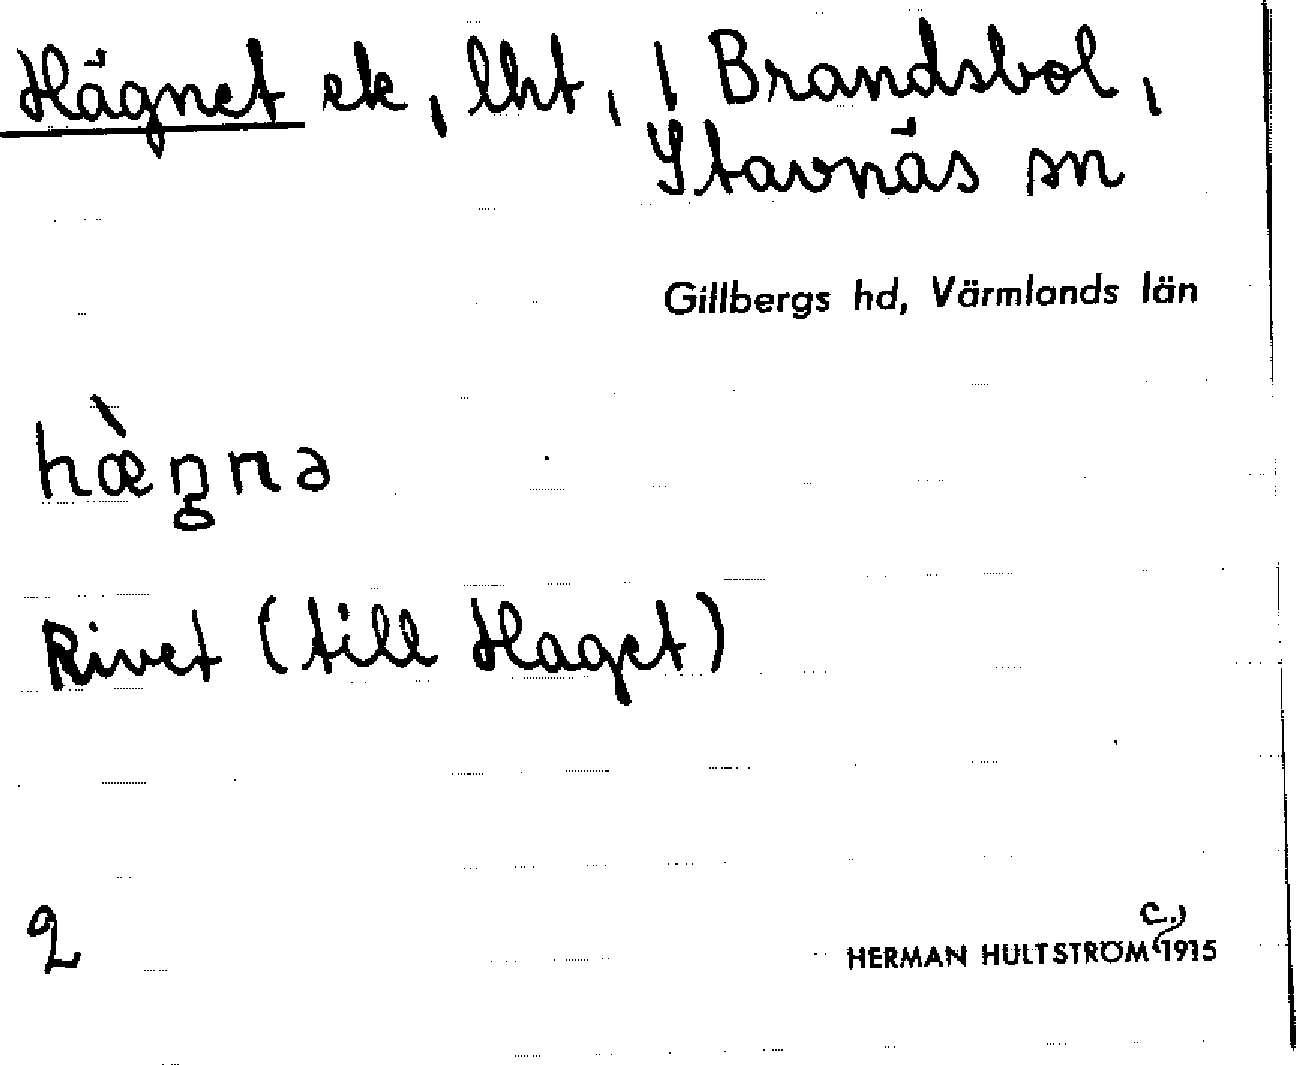 Hägnet ek, lht, i Brandsbol,
Stavnäs sn
Gillbergs hd, Värmlands län
hæ̀gnə
Rivet (till Haget)
2
HERMAN HULTSTRÖM c., 1915